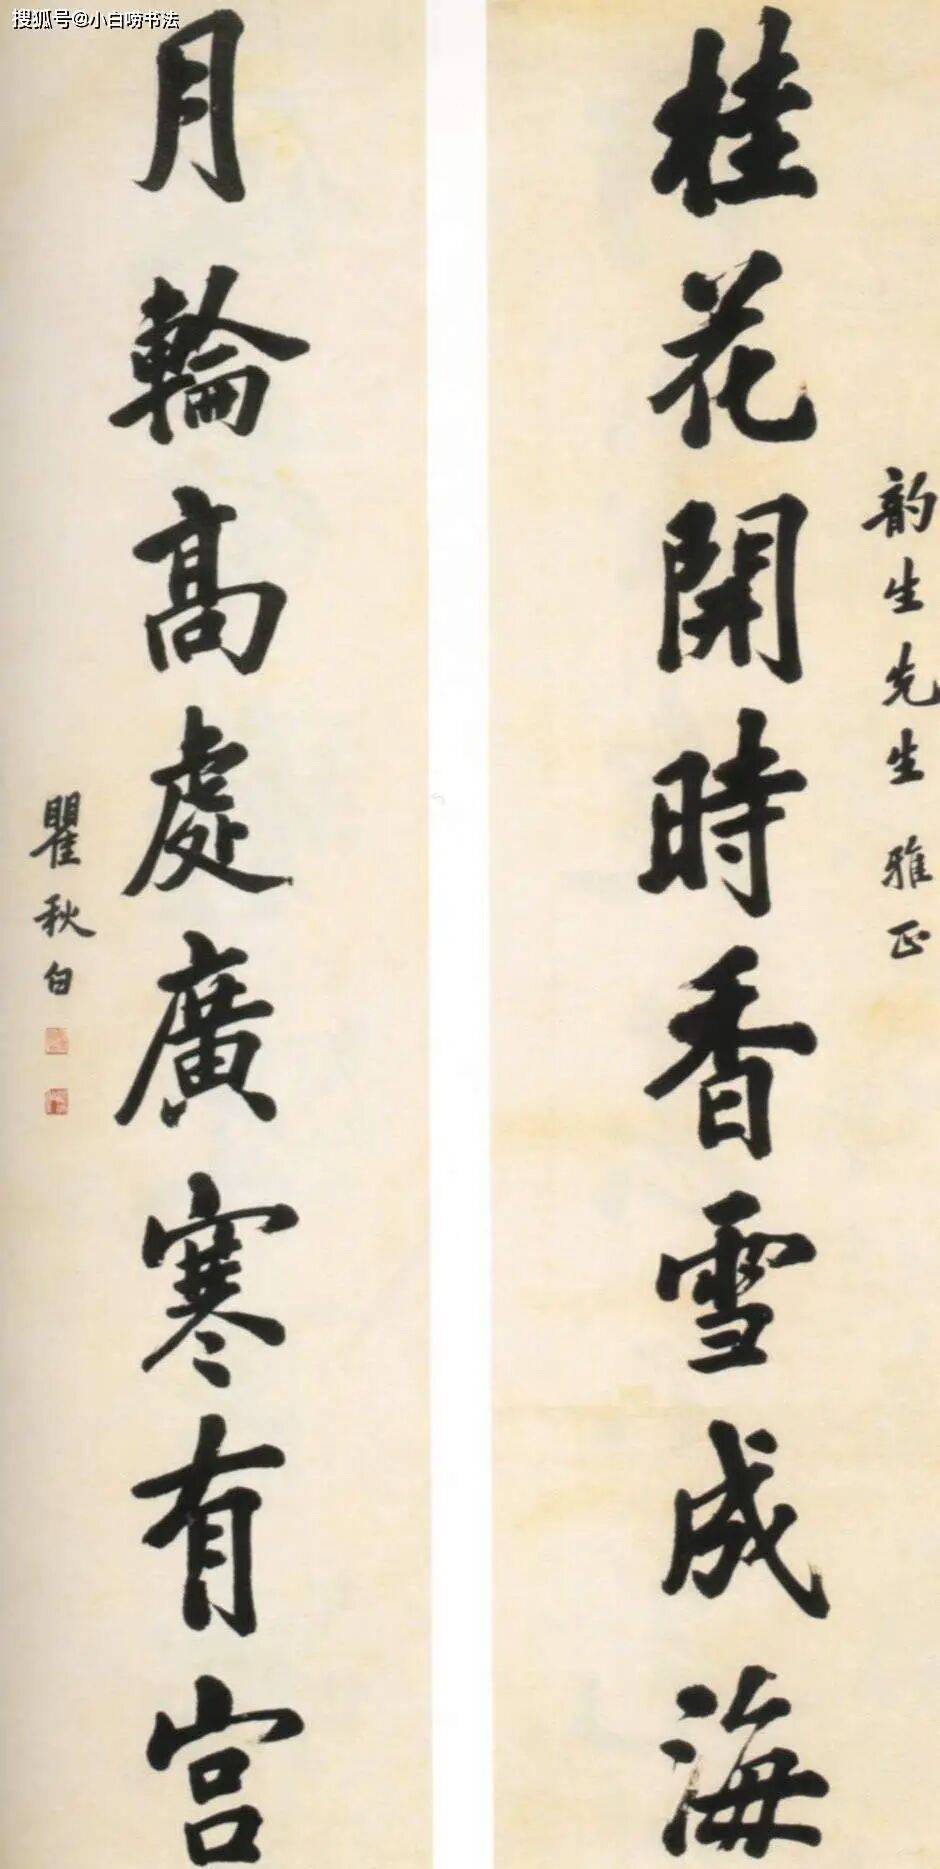 搜狐号@小白唠书法
韵生先生 雅正
桂花開時香雪成海
月輪高處廣寒有宫
瞿秋白